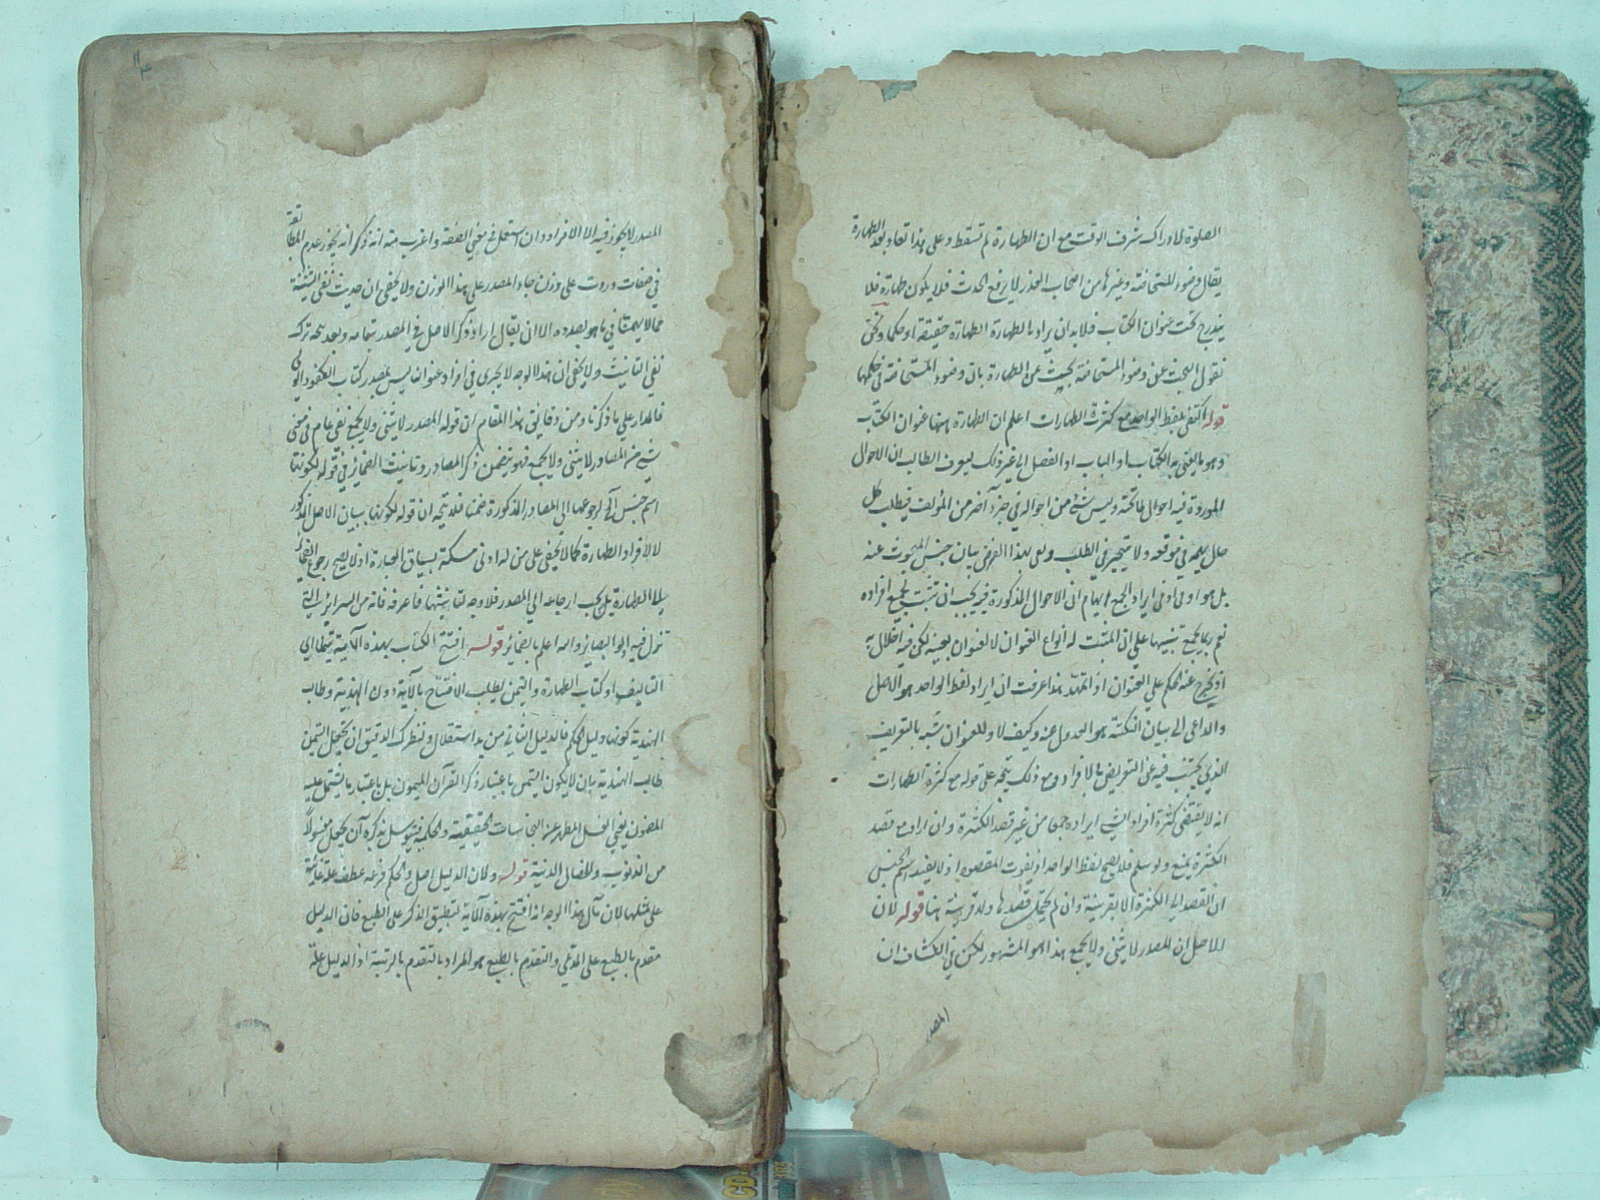 الصلوة لادراك شرف الوقت مع ان الطهارة لم تسقط وعلى هذا تعاد بعد الطهارة
يقال وضوء المستحاضة وغيرها من اصحاب العذر لا يرفع الحدث فلا يكون طهارة فلا
يندرج تحت عنوان الكتاب فلابد ان يراد بالطهارة الطهارة حقيقة او حكما ونحن
نقول البحث عن وضوء المستحاضة بحث عن الطهارة بان وضوء المستحاضة في حكمها
قوله اكتفى بلفظ الواحد مع كثرة الطهارات اعلم ان الطهارة ههنا عنوان الكتاب
وهو ما يعنى به الكتاب او الباب او الفصل الى غير ذلك ليعرف الطالب ان الاحوال
الموردة فيه احوال ما تحته وليس شئ من احواله في جزء آخر من المؤلف فيطلب كل
حال يهمه في موقعه ولا يتحير في الطلب وفي هذا الغرض بيان جنس المبحوث عنه
بل هو اولى اذ في ايراد الجمع ايهام ان الاحوال المذكورة فيه يجب ان تثبت لجميع افراده
نعم ربما يجمع تنبيها على ان المثبت له انواع العنوان لا العنوان بعينه لكن فيه اخلال به
اذ يخرج عنه الحكم على العنوان اذا تمهد هذا عرفت ان ايراد لفظ الواحد هو الاصل
والداعى الى بيان النكتة هو العدول عنه وكيف لا وللعنوان شبه بالتعريف
الذي يجتنب فيه عن التعريض بالافراد ومع ذلك يتجه على قوله مع كثرة الطهارات
انه لا يقتضى كثرة افراد الشئ ايراده جمعا من غير قصد الكثرة وان اراد مع قصد
الكثرة يمنع ولو سلم فلا يصح لفظ الواحد اذ يفوت المقصود اذ لا يفيد اسم الجنس
ان القصد الى الكثرة الا بقرينة وان لم يحتمل قصدها ولا قرينة هنا قوله لان
الاصل ان المصدر لا يثنى ولا يجمع هذا هو المشهور لكن في الكشاف ان
المصدر
المصدر لا يجوز فيه الا الافراد وان استعمل في معنى الصفة واغرب منه انه ذكر انه يجوز عدم المطابقة
في صفات وردت على وزن جاء المصدر على هذا الوزن ولا يخفى ان حديث نفى التثنية
مما لا يهمنا في ما هو بصدده الا ان يقال اراد ذكر الاصل في المصدر بتمامه وبعد يتجه ترك
نفى التانيث ولا يخفى ان هذا الوجه لا يجرى في افراد عنوان ليس بمصدر ككتاب
فالمدار على ما ذكرنا ومن دقائق هذا المقام ان قوله المصدر لا يثنى ولا يجمع نفى عام في معنى
شئ من المصادر لا يثنى ولا يجمع فهو يتضمن ذكر المصادر وتانيث الضمائر في قوله لكونها
اسم جنس الخ لرجوعها الى المصادر المذكورة ضمنا فلا يتجه ان قوله لكونها بيان الاصل المذكور
لا لافراد الطهارة كما لا يخفى على من له ادنى مسكة بسياق العبارة اذ لا يصح رجوع الضمائر
الى الطهارة بل يجب ارجاعه الى المصدر فلا وجه لتانيثها فاعرفه فانه من السرائر التي
تزل فيه اولو البصائر والله اعلم بالضمائر قوله افتتح الكتاب بهذه الآية تيمنا اي
التاليف او كتاب الطهارة والتيمن يطلب الافتتاح بالآية دون الهندية وطالب
الهندية كونها دليل الحكم فالدليل الثاني من يد استقلال ولنظرك الدقيق ان تجعل التيمن
طالب الهندية بان لا يكون التيمن باعتبار ذكر القرآن الميمون بل باعتبار ما يشتمل عليه
المضمون يعنى الغسل المطهر عن النجاسات الحقيقية والحكمية فيتوسل بذكره ان يجعل مغسولا
من الذنوب والخصال الدنية قوله ولان الدليل اصل والحكم فرعه عطف علة غائية
على مثلها لان مآل هذا الوجه انه افتتح بهذه الآية لتطبيق الذكر على الطبع فان الدليل
مقدم بالطبع على المدعى والتقدم بالطبع هو المراد بالتقدم بالرتبة اذ الدليل علة